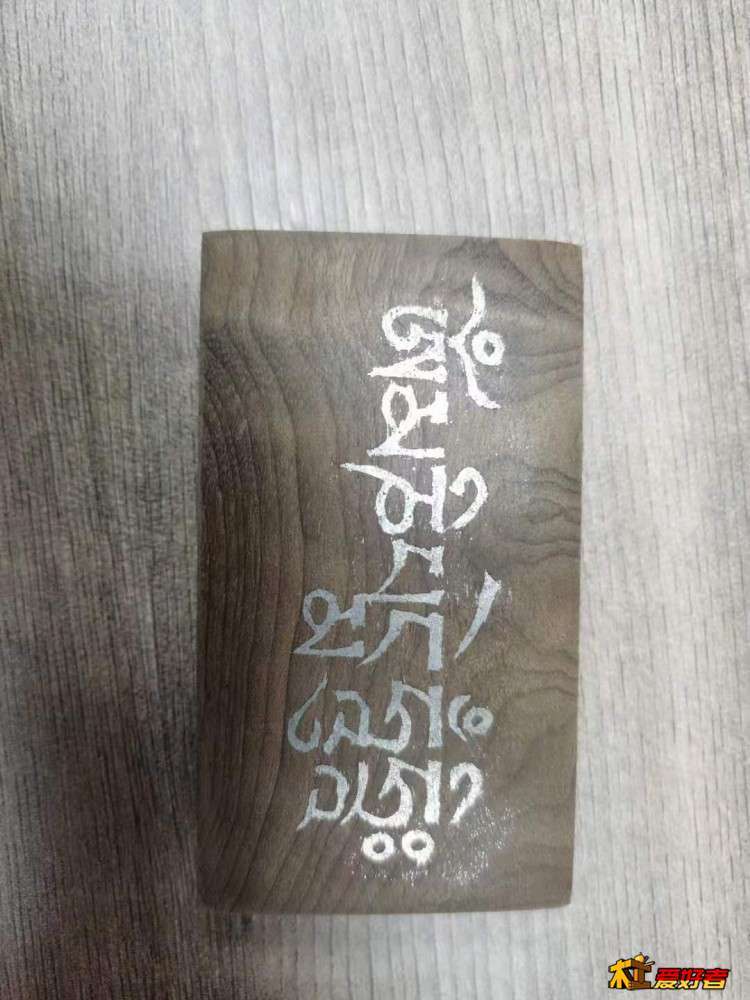 ཨོཾམཎིཔདྨེཧཱུྃཧྲཱིཿ
木工爱好者